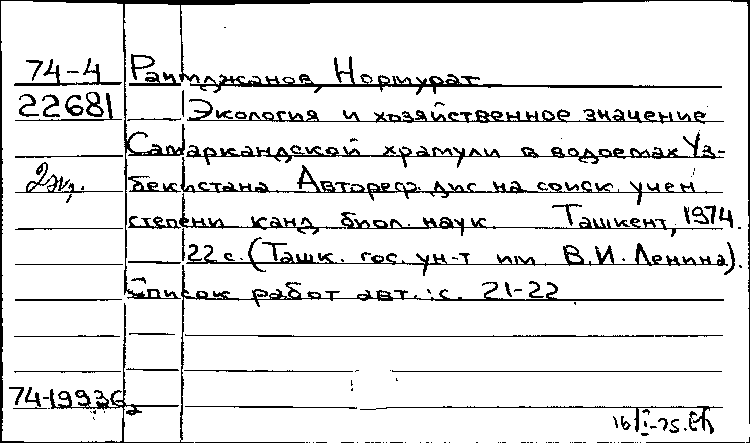 74-4 Раимджанов, Нормурат.
22681 Экология и хозяйственное значение
Самаркандской храмули в водоемах Уз-
2 экз. бекистана. Автореф. дис. на соиск. учен.
степени канд. биол. наук. Ташкент, 1974.
22 с. (Ташк. гос. ун-т им. В.И. Ленина).
Список работ авт.: с. 21-22.
74-19936